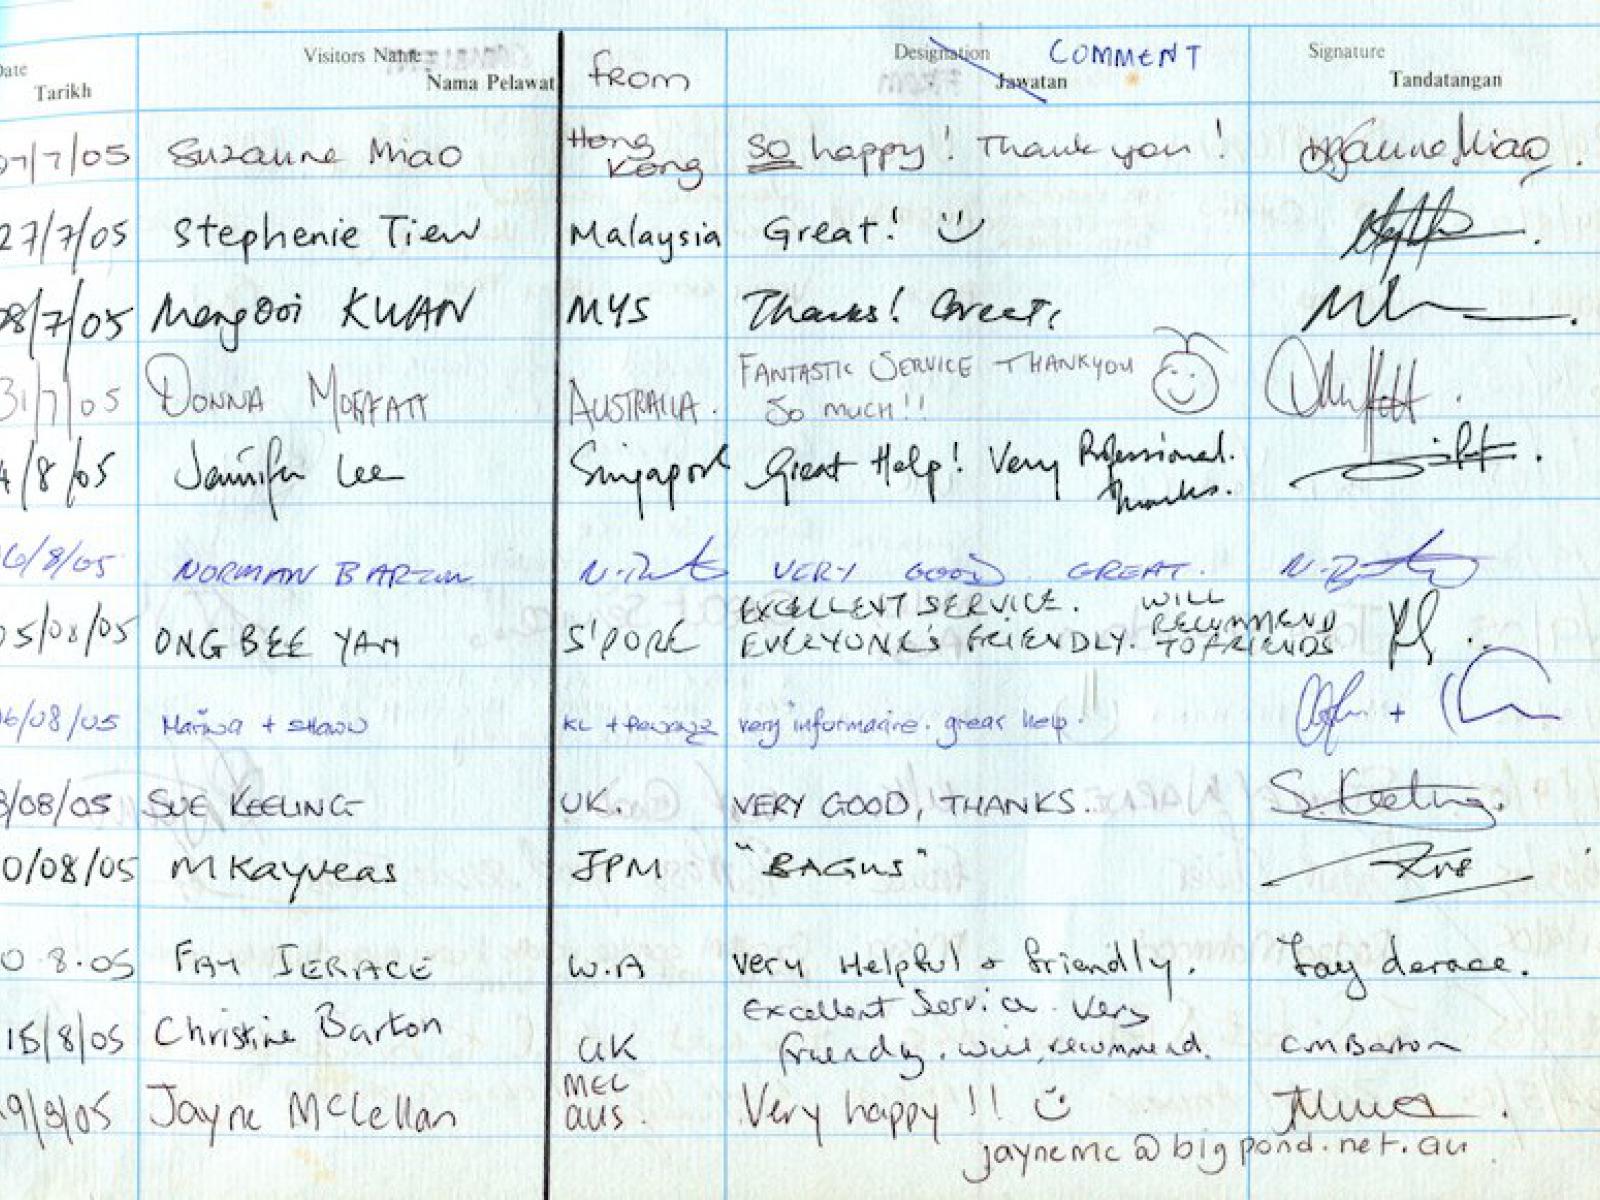 Date Visitors Name Designation COMMENT Signature
Tarikh Nama Pelawat from Jawatan Tandatangan
7/7/05 Suzanne Miao Hong Kong So happy! Thank you! Suzanne Miao.
27/7/05 Stephenie Tiew Malaysia Great!
8/7/05 Mengooi KWAN MYS Thanks! Great,
31/7/05 DONNA MOFFATT AUSTRALIA. FANTASTIC SERVICE THANKYOU
SO MUCH!!
4/8/05 Jennifer Lee Singapore Great Help! Very Professional.
Thanks.
6/8/05 NORMAN BARTON VERY GOOD. GREAT.
05/08/05 ONG BEE YAH S'PORE EXCELLENT SERVICE. WILL RECOMMEND
EVERYONE'S FRIENDLY. TO FRIENDS
6/08/05 Marina + SHAUN KL + very informative. great help.
8/08/05 SUE KEELING UK. VERY GOOD, THANKS. S. Keeling.
0/08/05 M Kayveas JPM "BAGUS"
0.8.05 FAY IERACE W.A Very Helpful & friendly. Fay Ierace.
15/8/05 Christine Barton UK Excellent Service. Very
friendly. will recommend. CM Barton
9/8/05 Jayne McLellan MEL AUS. Very happy!!
jaynemc@bigpond.net.au